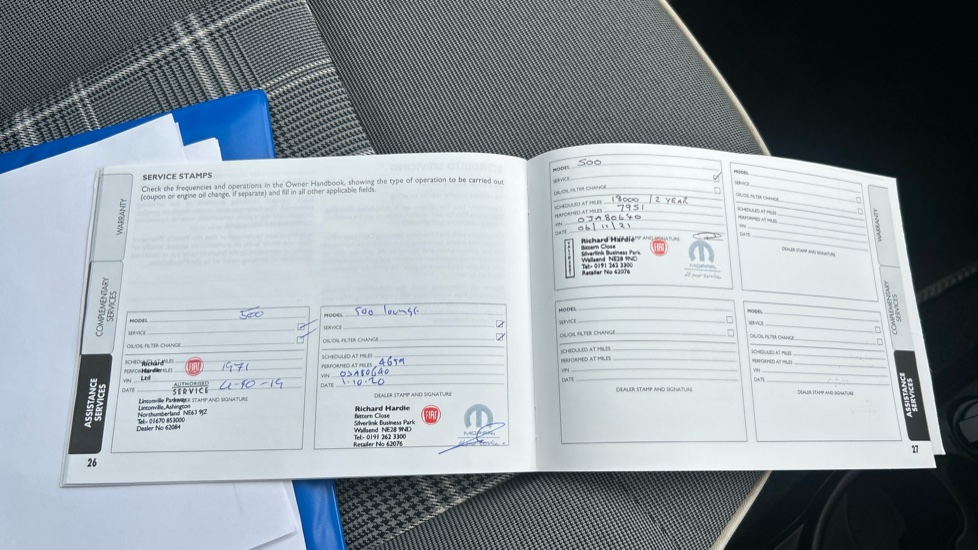 SERVICE STAMPS
Check the frequencies and operations in the Owner Handbook, showing the type of operation to be carried out
(coupon or engine oil change, if separate) and fill in all other applicable fields.
WARRANTY
COMPLEMENTARY SERVICES
ASSISTANCE SERVICES
MODEL 500
SERVICE
OIL/OIL FILTER CHANGE
SCHEDULED AT MILES
PERFORMED AT MILES 1971
VIN
DATE 4-10-19
Richard
Hardie
Ltd
FIAT
AUTHORISED
SERVICE
DEALER STAMP AND SIGNATURE
Lintonville Parkway
Lintonville, Ashington
Northumberland NE63 9JZ
Tel:- 01670 853000
Dealer No 62084
26
MODEL 500 lounge
SERVICE
OIL/OIL FILTER CHANGE
SCHEDULED AT MILES
PERFORMED AT MILES
VIN OJA80640
DATE 1.10.20
DEALER STAMP AND SIGNATURE
Richard Hardie
Bittern Close
Silverlink Business Park
Wallsend NE28 9ND
Tel:- 0191 262 3300
Retailer No 62076
FIAT
MOPAR
MODEL 500
SERVICE
OIL/OIL FILTER CHANGE
SCHEDULED AT MILES 18000 / 2 YEAR
PERFORMED AT MILES 7951
VIN OJA80640
DATE 06/11/21
DEALER STAMP AND SIGNATURE
Richard Hardie
Bittern Close
Silverlink Business Park
Wallsend NE28 9ND
Tel:- 0191 262 3300
Retailer No 62076
FIAT
MOPAR
MODEL
SERVICE
OIL/OIL FILTER CHANGE
SCHEDULED AT MILES
PERFORMED AT MILES
VIN
DATE
DEALER STAMP AND SIGNATURE
MODEL
SERVICE
OIL/OIL FILTER CHANGE
SCHEDULED AT MILES
PERFORMED AT MILES
VIN
DATE
DEALER STAMP AND SIGNATURE
MODEL
SERVICE
OIL/OIL FILTER CHANGE
SCHEDULED AT MILES
PERFORMED AT MILES
VIN
DATE
DEALER STAMP AND SIGNATURE
WARRANTY
COMPLEMENTARY SERVICES
ASSISTANCE SERVICES
27